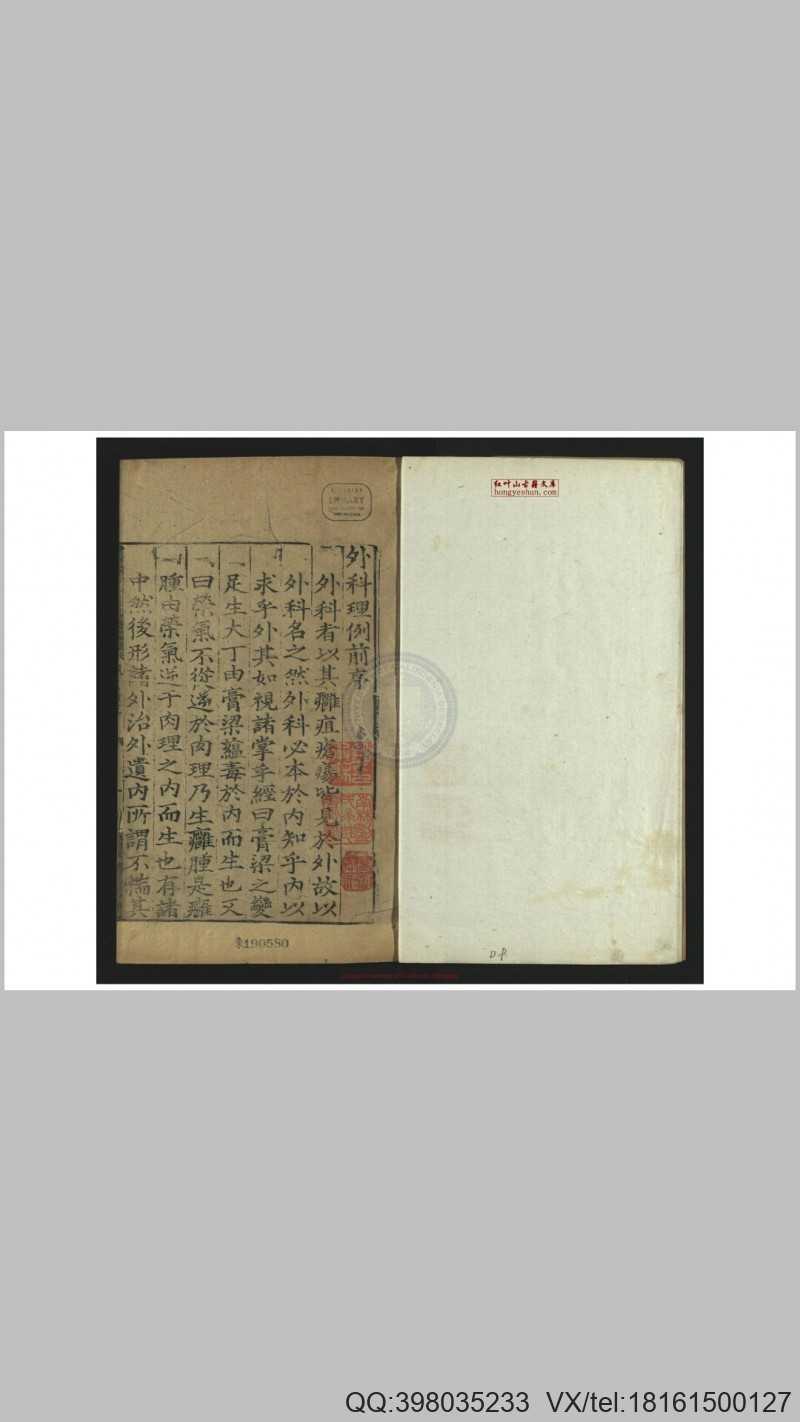 红叶山古籍文库
hongyeshan.com
外科理例前序
外科者以其癰疽瘡瘍皆見於外故以
外科名之然外科必本於内知乎内以
求乎外其如視諸掌乎經曰膏梁之變
足生大丁由膏梁蘊毒於内而生也又
曰榮氣不從逆於肉理乃生癰腫是癰
腫由榮氣逆于肉理之内而生也有諸
中然後形諸外治外遺内所謂不揣其
190580
QQ:398035233 VX/tel:18161500127